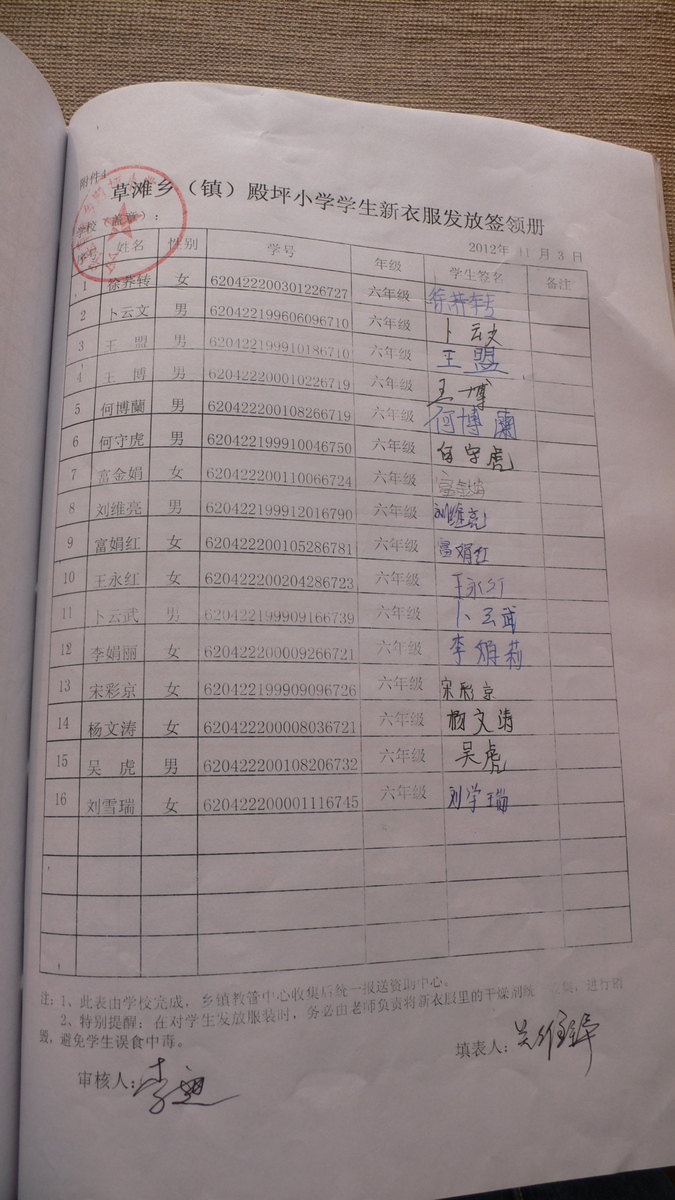 附件4
草滩乡（镇）殿坪小学学生新衣服发放签领册
学校（盖章）： 2012年 11 月 3 日
序号 姓名 性别 学号 年级 学生签名 备注
1 徐荞转 女 620422200301226727 六年级 徐荞转
2 卜云文 男 620422199606096710 六年级 卜云文
3 王 盟 男 620422199910186710 六年级 王盟
4 王 博 男 620422200010226719 六年级 王博
5 何博蘭 男 620422200108266719 六年级 何博蘭
6 何守虎 男 620422199910046750 六年级 何守虎
7 富金娟 女 620422200110066724 六年级 富金娟
8 刘维亮 男 620422199912016790 六年级 刘维亮
9 富娟红 女 620422200105286781 六年级 富娟红
10 王永红 女 620422200204286723 六年级 王永红
11 卜云武 男 620422199909166739 六年级 卜云武
12 李娟丽 女 620422200009266721 六年级 李娟莉
13 宋彩京 女 620422199909096726 六年级 宋彩京
14 杨文涛 女 620422200008036721 六年级 杨文涛
15 吴 虎 男 620422200108206732 六年级 吴虎
16 刘雪瑞 女 620422200001116745 六年级 刘学瑞
注：1、此表由学校完成，乡镇教管中心收集后统一报送资助中心。
2、特别提醒：在对学生发放服装时，务必由老师负责将新衣服里的干燥剂统 收集，进行销
毁，避免学生误食中毒。
填表人：
审核人：